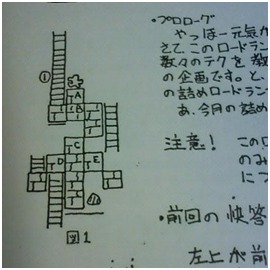 ・プロローグ
やっほー元気か
さて、このロードラン
数々のテクを教
の企画です。と、
の詰めロードラン
あ、今月の詰め
注意!
このロ
のみ
につ
・前回の快答
左上が前
①
A
B
C
D
E
図1